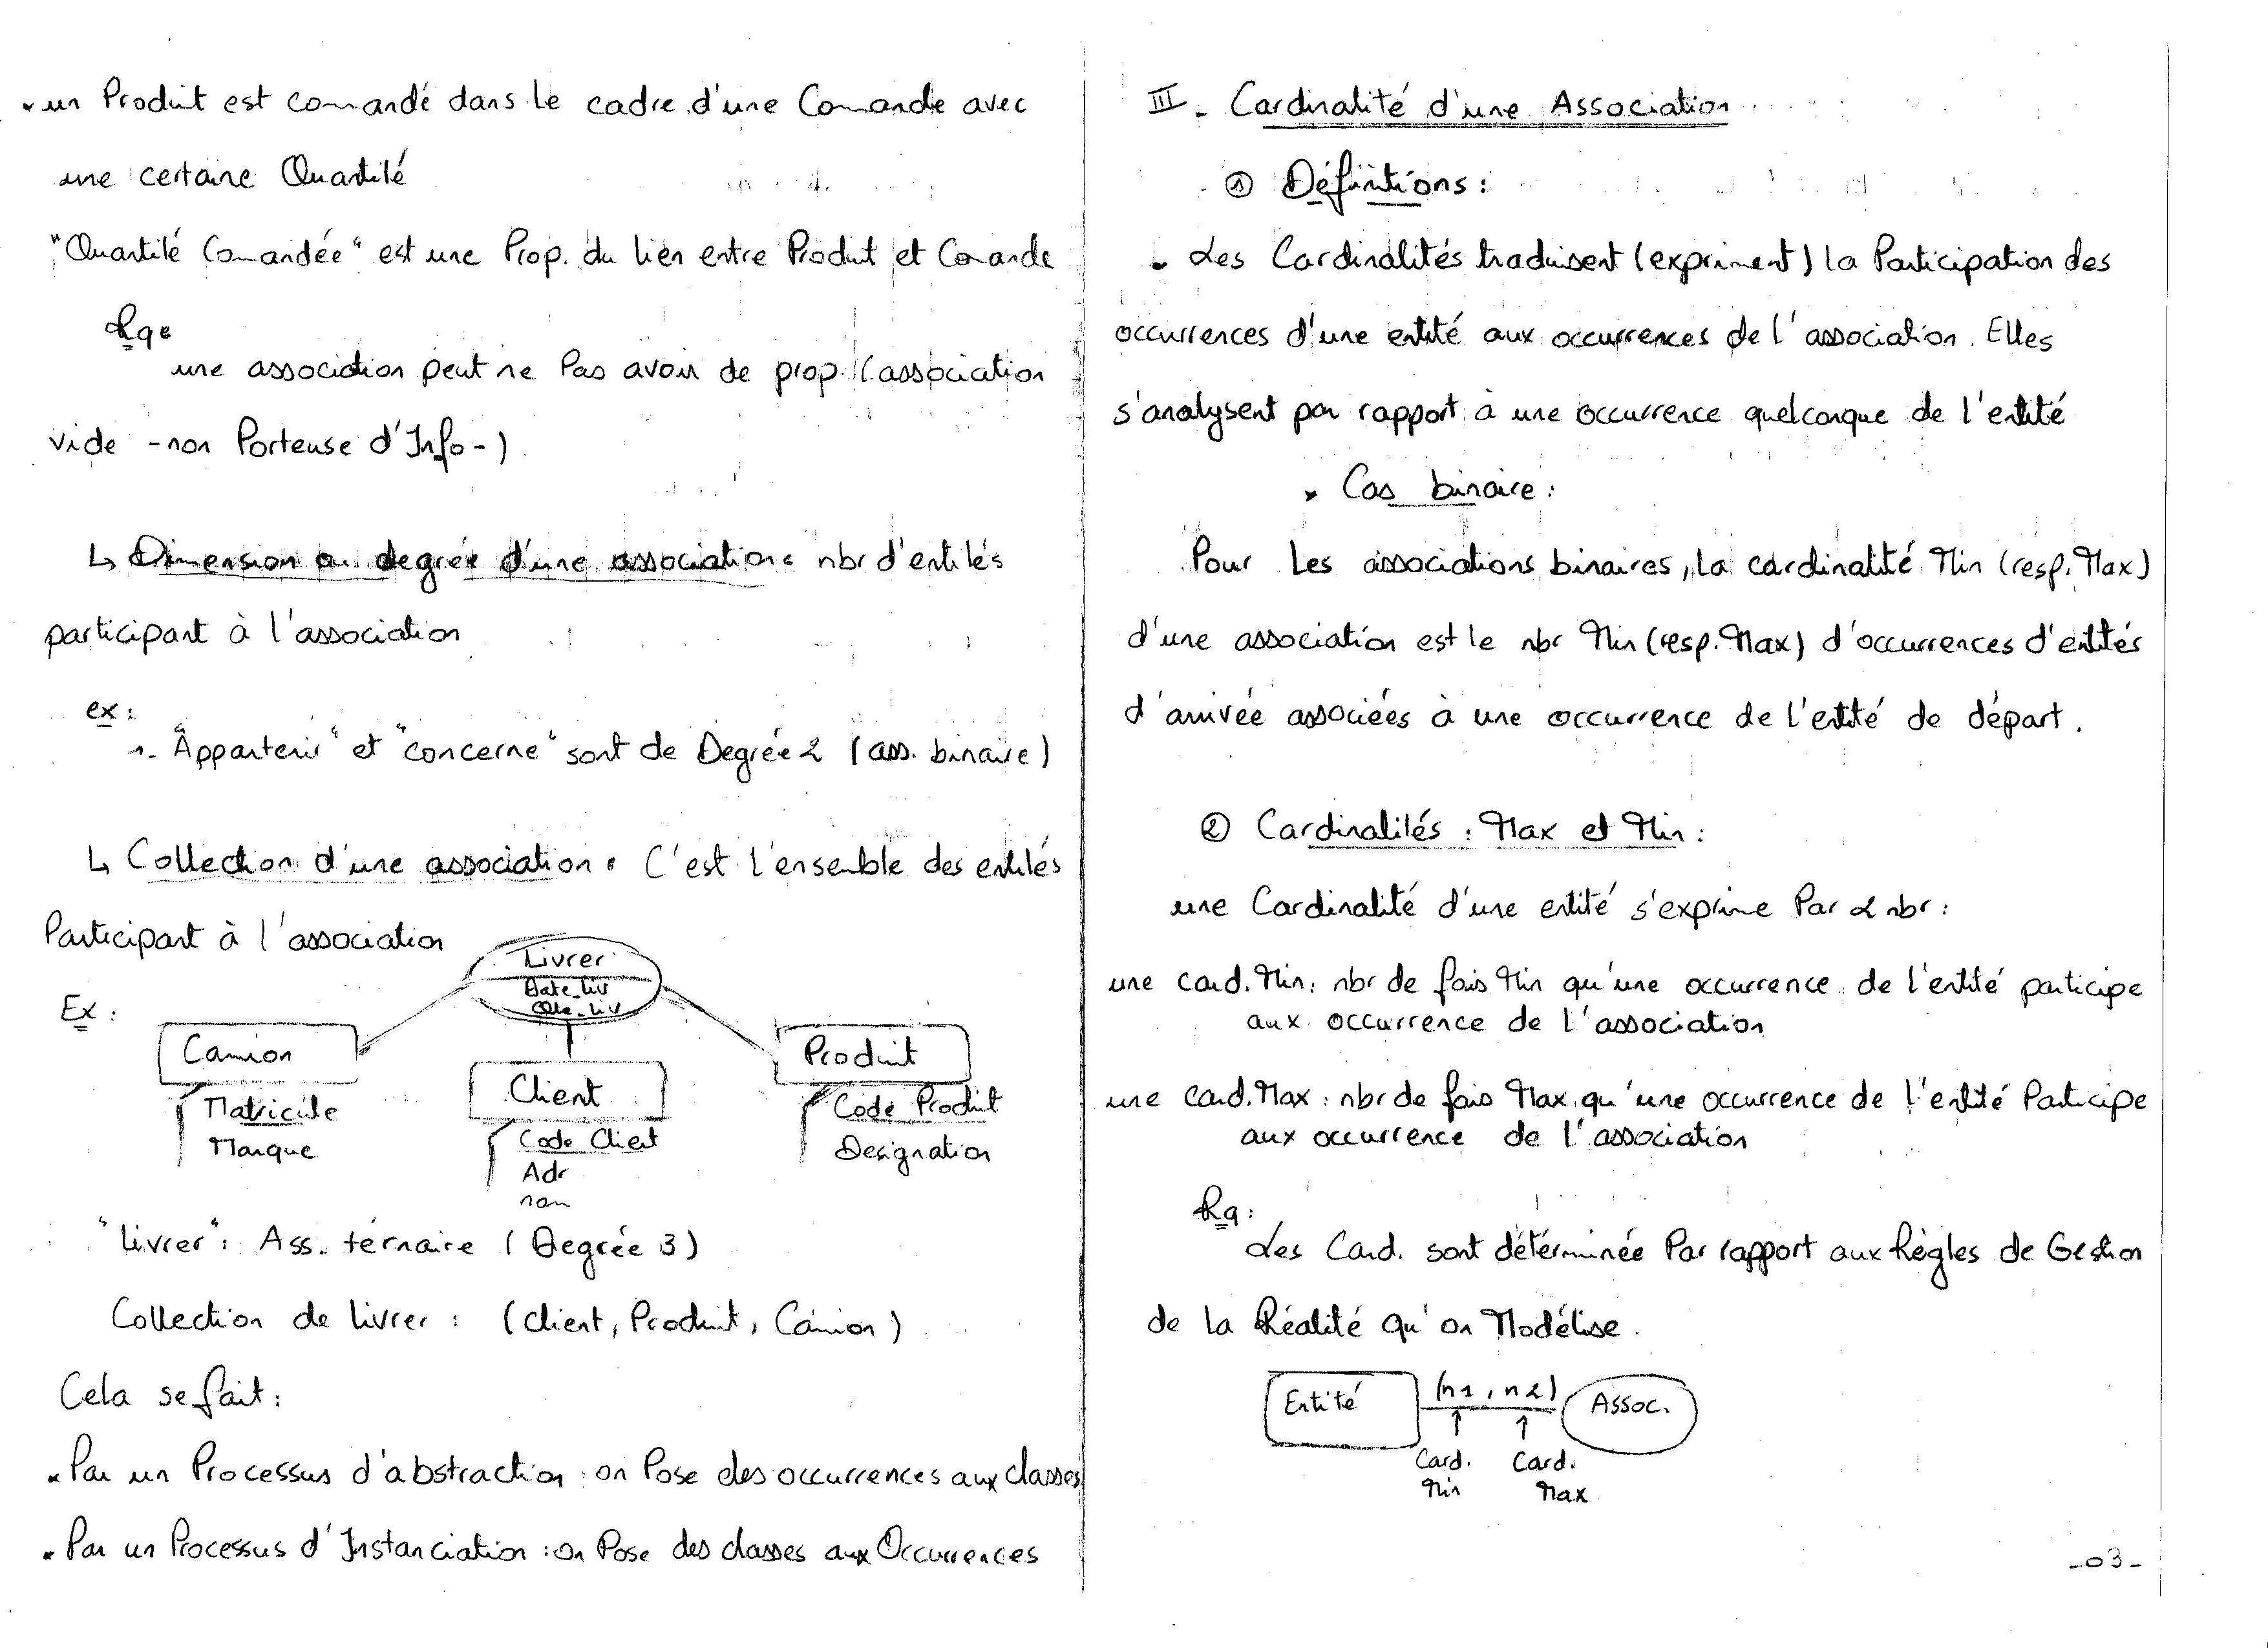 • un Produit est commandé dans le cadre d'une Commande avec
une certaine Quantité
"Quantité Commandée" est une Prop. du lien entre Produit et Commande
Rqe
une association peut ne Pas avoir de prop. (association
vide -non Porteuse d'Info-)
↳ Dimension ou degrée d'une association : nbr d'entités
participant à l'association
ex :
1. "Appartenir" et "concerne" sont de Degrée 2 (ass. binaire)
↳ Collection d'une association : C'est l'ensemble des entités
Participant à l'association
Ex :
Livrer
Date_liv
Qte_liv
Camion
Matricule
Marque
Client
Code Client
Adr
nom
Produit
Code Produit
Designation
"Livrer" : Ass. ternaire (Degrée 3)
Collection de livrer : (client, Produit, Camion)
Cela se fait :
• Par un Processus d'abstraction : on Pose des occurrences aux classes
• Par un Processus d'Instanciation : on Pose des classes aux Occurrences
III - Cardinalité d'une Association
① Définitions :
• Les Cardinalités traduisent (expriment) la Participation des
occurrences d'une entité aux occurrences de l'association. Elles
s'analysent par rapport à une occurrence quelconque de l'entité
• Cas binaire :
Pour Les associations binaires, la cardinalité Min (resp. Max)
d'une association est le nbr Min (resp. Max) d'occurrences d'entités
d'arrivée associées à une occurrence de l'entité de départ.
② Cardinalités : Max et Min :
une Cardinalité d'une entité s'exprime Par 2 nbr :
une card. Min : nbr de fois Min qu'une occurrence de l'entité participe
aux occurrence de l'association
une card. Max : nbr de fois Max qu'une occurrence de l'entité Participe
aux occurrence de l'association
Rq :
Les Card. sont déterminée Par rapport aux Règles de Gestion
de la Réalité qu'on Modélise.
Entité
(n1, n2)
Assoc.
↑ ↑
Card. Card.
Min Max
-03-